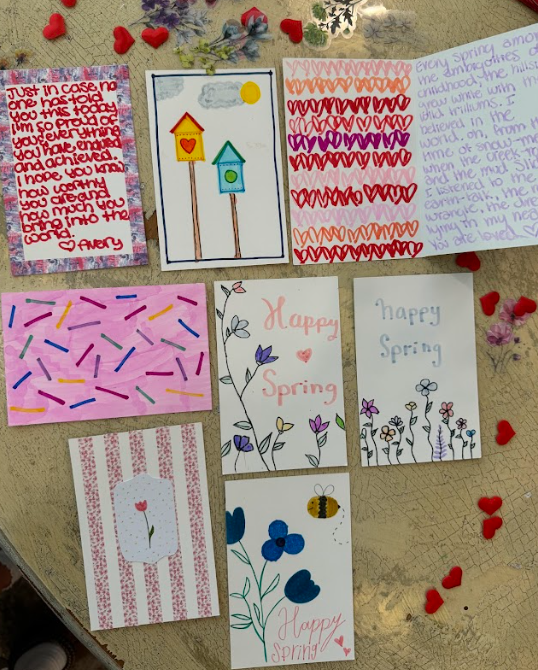 Just in case no
one has told
you this today
I'm so proud of
you, everything
you have endured
and achieved.
I hope you know
how worthy
you are and
how much you
bring into the
world.
♡ Avery
every spring among
the ambiguities of
childhood the hillsides
grew white with the
wild trilliums. I
believed in the
world. oh, I
time of snow-melt
when the creek
and the mud
I listened to the
earth-talk, the
wrangle, the
lying in my
You are loved ♡
Happy
♡
Spring
Happy
Spring
Happy
Spring